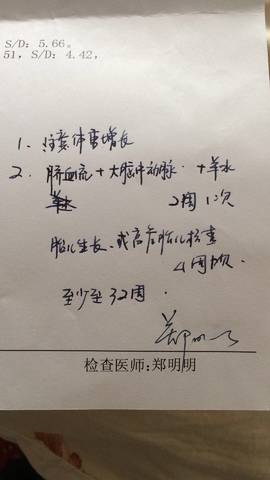 S/D: 5.66。
51, S/D: 4.42,
1、注意体重增长
2、脐血流+大脑中动脉 +羊水
2周1次
胎儿生长、或高危胎儿检查
4周1次
至少至32周.
检查医师:郑明明